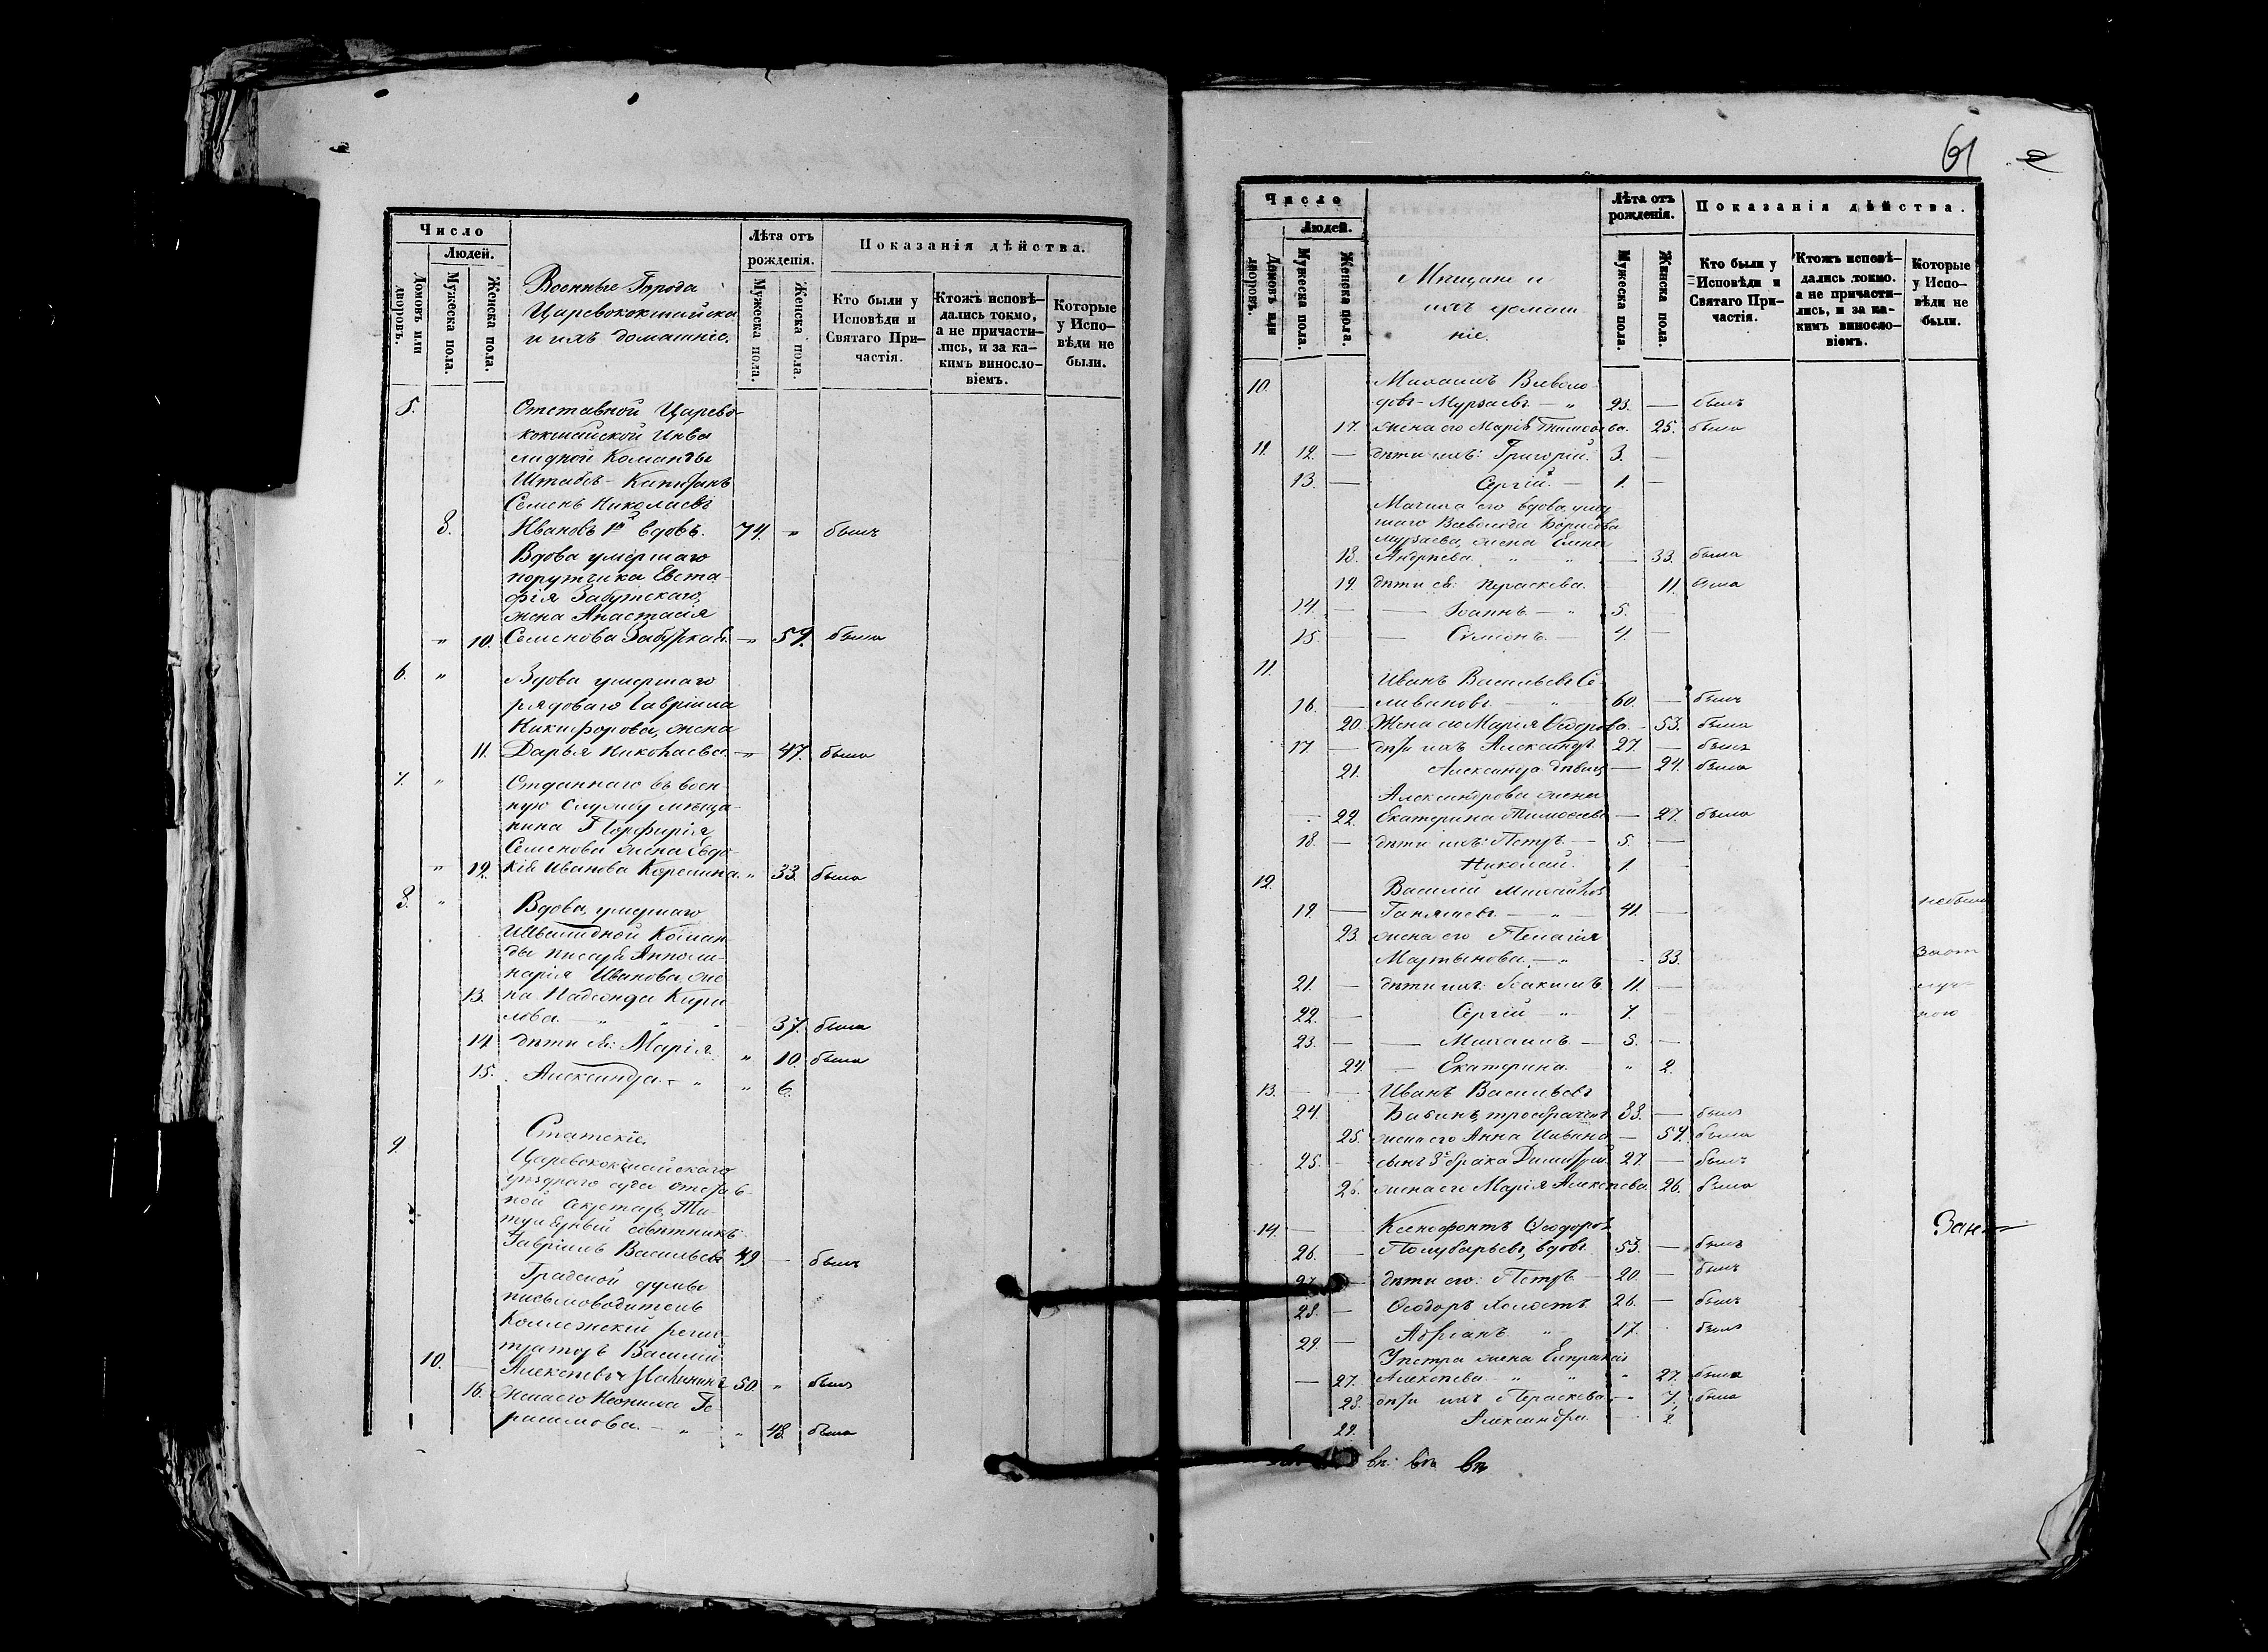 Число
Людей.
Домовъ или дворовъ.
Мужеска пола.
Женска пола.
Военные Города
Царевококшайска
и ихъ домашніе.
Лѣта отъ рожденія.
Мужеска пола.
Женска пола.
Показанія дѣйства.
Кто были у Исповѣди и Святаго Причастія.
Ктожъ исповѣдались токмо, а не причастились, и за какимъ винословіемъ.
Которые у Исповѣди не были.
5.
Отставной Царево-
кокшайской Инва
лидной Команды
Штабсъ-Капитанъ
Семенъ Николаевъ
8. Ивановъ 1й вдовъ. 74. " былъ
Вдова умершаго
порутчика Евста
фія Забутскаго,
жена Анастасія
" 10. Семенова Забутская. — " 59. была
6. " Вдова умершаго
рядоваго Гавріила
Никифорова, жена
11. Дарья Николаева. — " 47. была
7. " Отданнаго въ воен
ную службу мѣща-
нина Порфирія
Семенова жена Евдо-
" 12. кія Иванова Корелина. " 33. была
8. " Вдова, умершаго
Инвалидной Коман-
ды писаря Апполи-
нарія Иванова, же-
13. на Надежда Кири
лова. — " — " — 37. была
14. дѣти ея: Марія. " 10. была
15. Александра. — " " 6.
Статскіе.
9. Царевококшайскаго
уѣзднаго суда отстав-
ной секретарь, Ти-
тулярный совѣтникъ
Гавріилъ Васильевъ 49 — былъ
Градской думы
письмоводитель
Коллежскій регис-
траторъ Василій
10. Алексѣевъ 50. " былъ
16. жена его Неонила Ге
расимова. — " — " 48. была
61
Число
Людей.
Домовъ или дворовъ.
Мужеска пола.
Женска пола.
Мѣщане и
ихъ домаш-
ніе.
Лѣта отъ рожденія.
Мужеска пола.
Женска пола.
Показанія дѣйства.
Кто были у Исповѣди и Святаго Причастія.
Ктожъ исповѣдались токмо. а не причастились, и за какимъ винословіемъ.
Которые у Исповѣди не были.
10. Михаилъ Всеволо
довъ Мурзаевъ — " 23. — былъ
17. жена его Марія Тимоѳеева. 25. была
11. 12. — дѣти ихъ: Григорій. 3. —
13. — Сергій. — 1. —
Мачиха его вдова, умер
шаго Всеволода Борисова
Мурзаева, жена Елена
18. Андреева. " " — 33. была
19. дѣти ея: Параскева. 11. была
14. — — Іоаннъ — " 5. —
15. — Симіонъ — 4. —
11. Иванъ Васильевъ Се-
16. — ливановъ — " — 60. — былъ
20. Жена его Марія Ѳедорова — 53. была
17. — дѣти ихъ Александръ 27. — былъ
21. Александра дѣвица — 24. была
Александрова жена
22. Екатерина Тимоѳеева — 27. была
18. — дѣти ихъ: Петръ — 5. —
Николай. 1. —
12. Василій Михайловъ
19. — — " — 41. — небыли
23. жена его Пелагія
Мартынова. — " 33. за от
21. — дѣти ихъ: Іоакимъ. 11. — луч-
22. — Сергій — " 7. — кою
23. — — Михаилъ — 5. —
24. — Екатерина. " 2.
13. — — Иванъ Васильевъ
24. Бабинъ, троебрачный 33. — былъ
25. жена его Анна Ильина — 54. была
25. — сынъ 3го брака Димитрій. 27. — былъ
26. жена его Марія Алексѣева. 26. была
14. — — Ксенофонтъ Ѳеодоровъ
26. — Полубарьевъ, вдовъ. 53. — былъ
27. — дѣти его: Петръ — 20. — былъ
28. — Ѳеодоръ холостъ. 26. — былъ
29. — Адріанъ. " 17. былъ
У Петра жена Евпраксія
— 27. Алексѣева. " " " 27. была
28. дѣти ихъ Параскева — " 7. была
29. Александра. — 2.